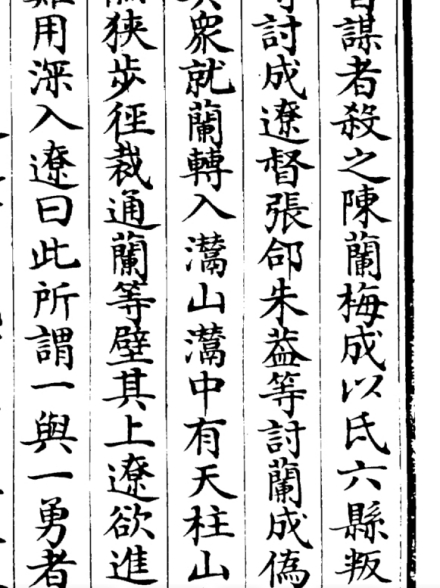 謀者殺之陳蘭梅成以氏六縣叛
討成遼督張郃朱葢等討蘭成偽
衆就蘭轉入灊山灊中有天柱山
狹步徑裁通蘭等壁其上遼欲進
用深入遼曰此所謂一與一勇者